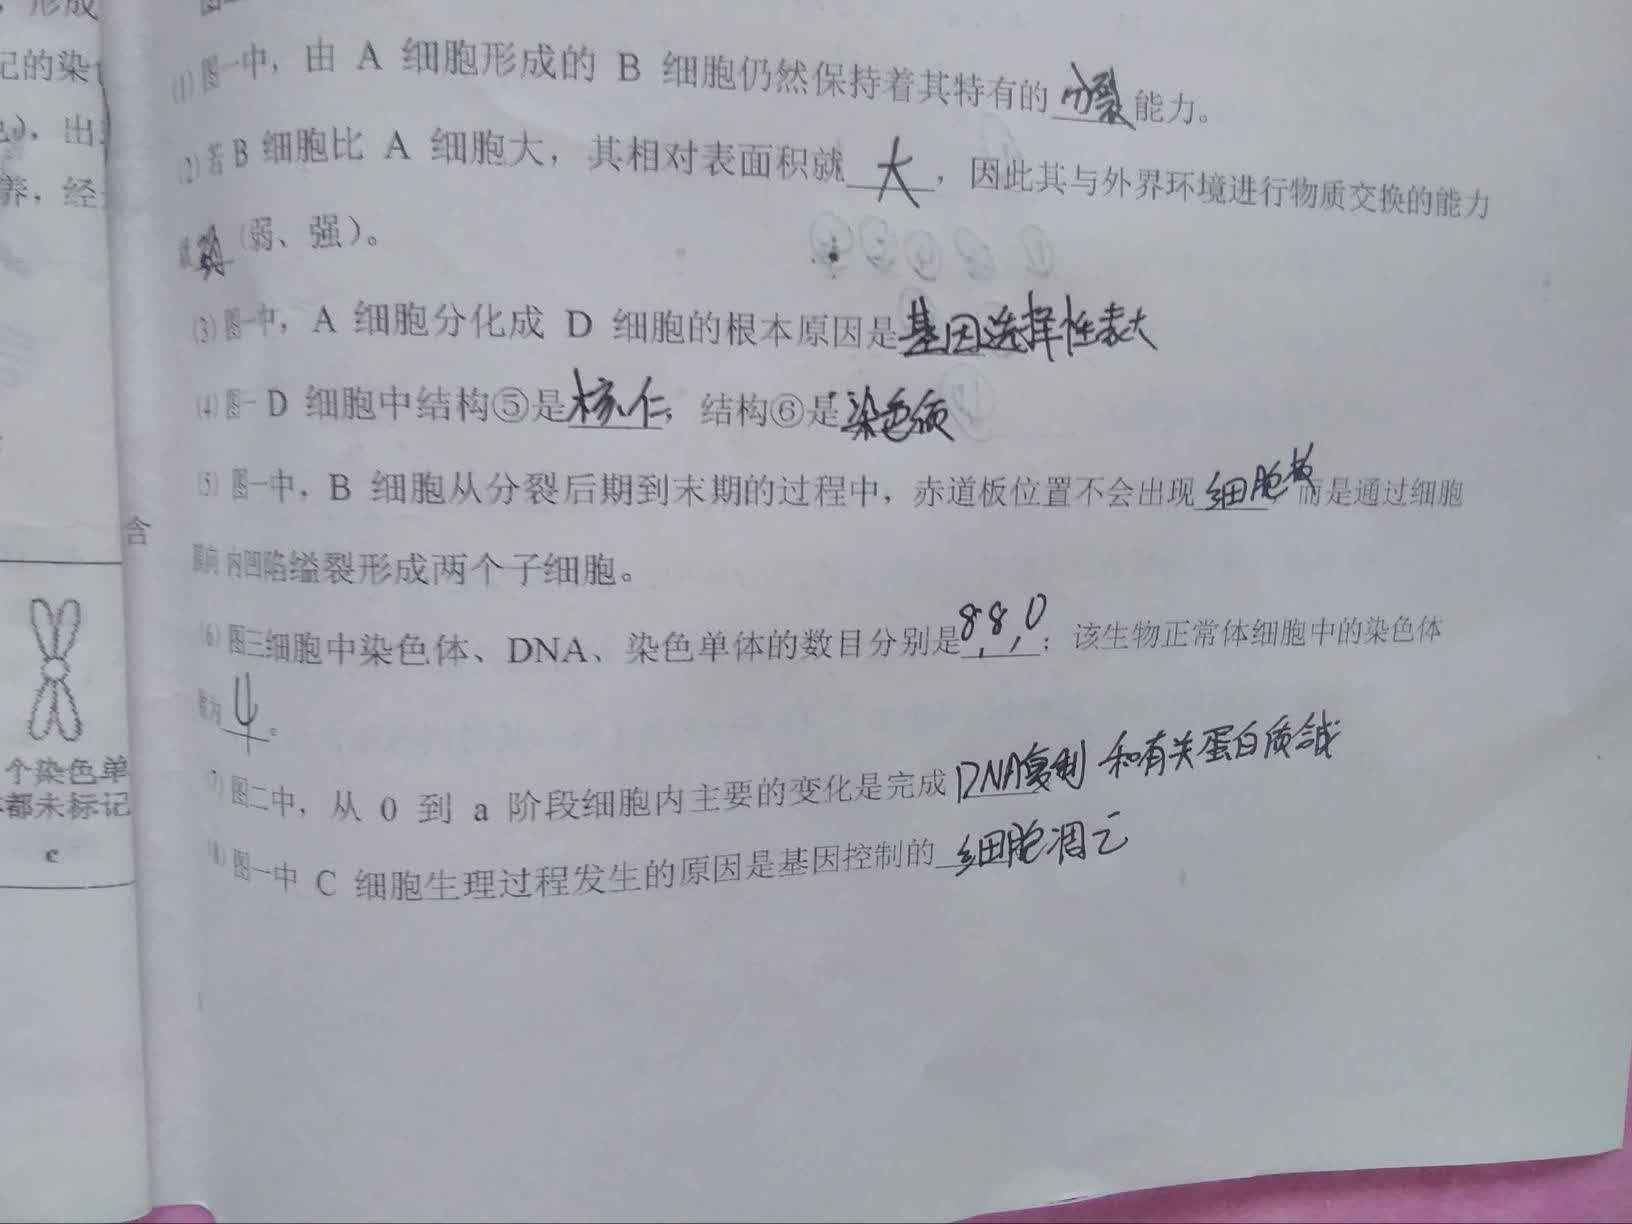 形成
记的染
），出
养，经
(1)图一中，由 A 细胞形成的 B 细胞仍然保持着其特有的 分裂 能力。
(2)若 B 细胞比 A 细胞大，其相对表面积就 大 ，因此其与外界环境进行物质交换的能力
就 弱 (弱、强)。
(3)图一中，A 细胞分化成 D 细胞的根本原因是 基因选择性表大
(4)图一 D 细胞中结构⑤是 核仁，结构⑥是 染色质
(5)图一中，B 细胞从分裂后期到末期的过程中，赤道板位置不会出现 细胞板 而是通过细胞
膜向内凹陷缢裂形成两个子细胞。
(6)图三细胞中染色体、DNA、染色单体的数目分别是 8,8,0；该生物正常体细胞中的染色体
数为 4 。
(7)图二中，从 0 到 a 阶段细胞内主要的变化是完成 DNA复制 和有关蛋白质合成
(8)图一中 C 细胞生理过程发生的原因是基因控制的 细胞凋亡
含
个染色单
都未标记
c